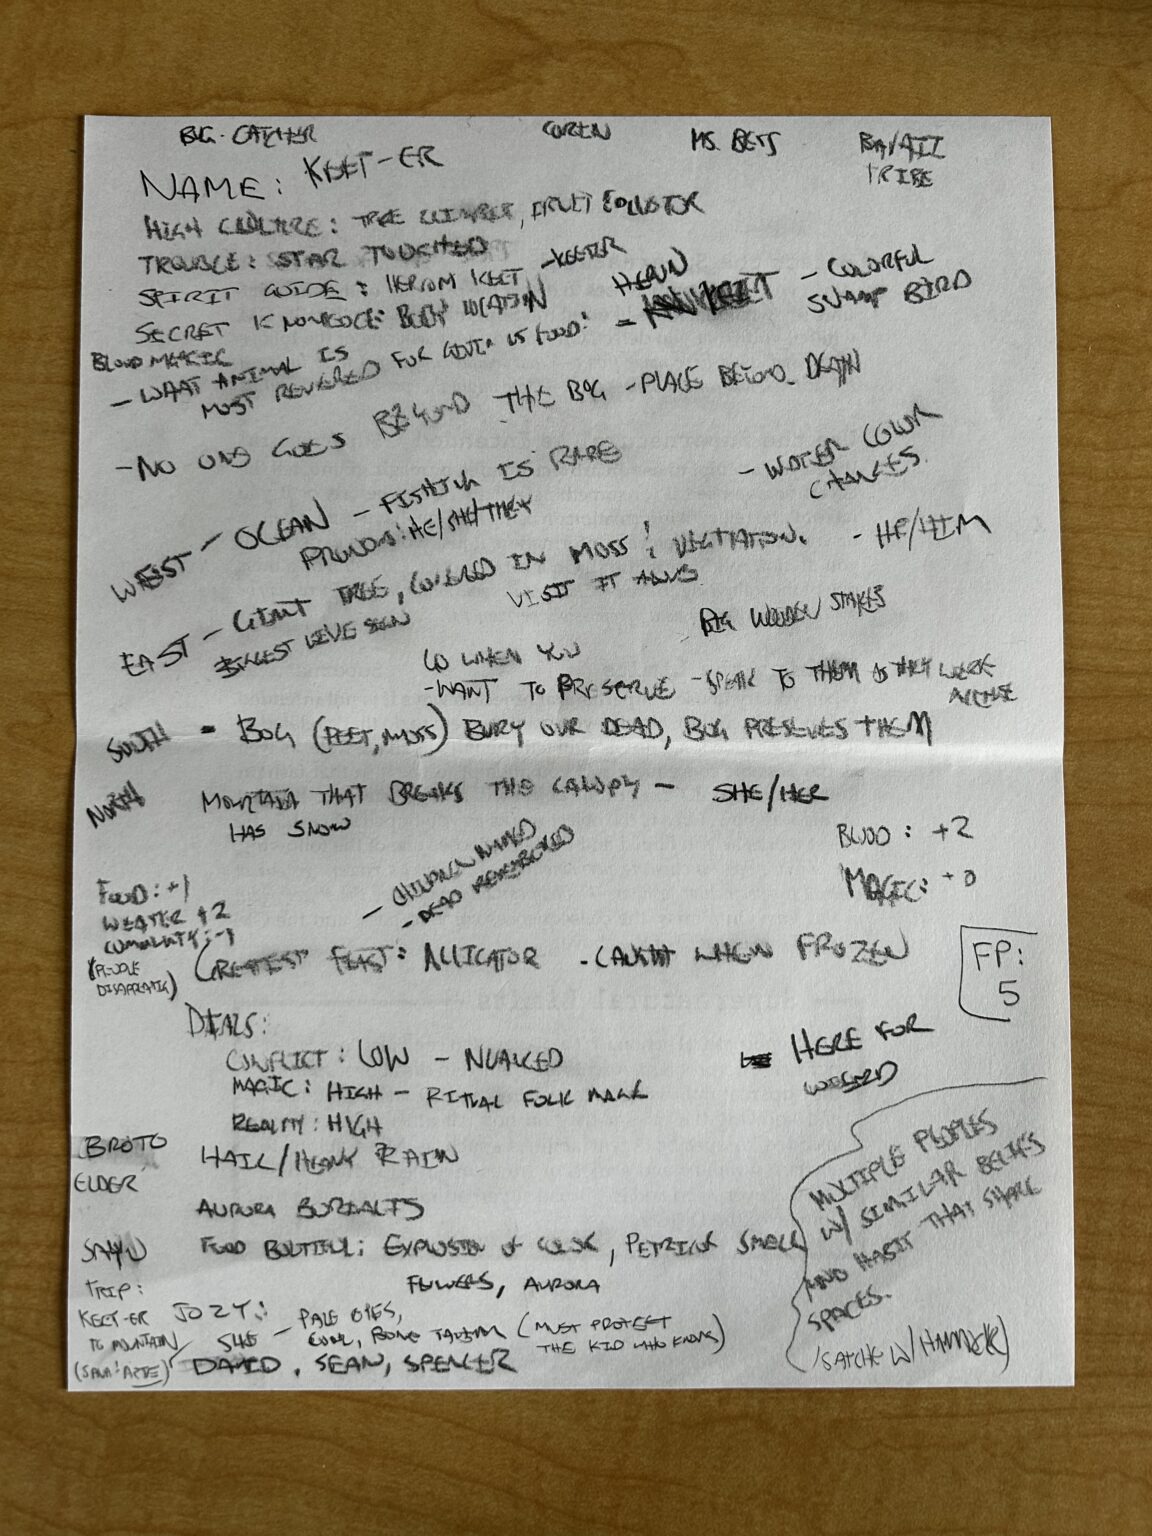 BUG-CATCHER COREN MS. BETS BA/AII TRIBE
NAME: KEET-ER
HIGH CULTURE: TREE CLIMBER, FRUIT COLLECTOR
TROUBLE: STAR TOUCHED
SPIRIT GUIDE: KEET -KEETER
SECRET KNOWLEDGE: BODY LOCATION
BLOOD MAGIC
- WHAT ANIMAL IS
MOST REVERED FOR GIVIN US FOOD: - HERON - COLORFUL
SWAMP BIRD
- NO ONE GOES BEYOND THE BOG - PLACE BEYOND DEATH
WEST - OCEAN - FISHING IS RARE - WATER COLOR
CHANGES.
PRONOUN: HE/SHE/THEY
EAST - GIANT TREE, COVERED IN MOSS & VEGITATION. - HE/HIM
BIGGEST LIVE VISIT IT
- BIG WOODEN STAKES
GO WHEN YOU
- WANT TO PRESERVE - SPEAK TO THEM AS THEY WERE
SOUTH - BOG (PEET, MOSS) BURY OUR DEAD, BOG PRESEVES THEM
NORTH MOUNTAIN THAT BREAKS THE CANOPY - SHE/HER
HAS SNOW
BLOOD: +2
MAGIC: +0
FOOD: +1
WEATER +2
COMMUNITY: -1
(PEOPLE
- CHILDREN NAMED
- DEAD REMEMBERED
GREATEST FEAST: ALLIGATOR - CAUGHT WHEN FROZEN
FP:
5
DIALS:
CONFLICT: LOW - NUANCED
MAGIC: HIGH - RITUAL FOLK MAGIC
REALITY: HIGH
HERE FOR
BROTO HAIL/HEAVY RAIN
ELDER
AURORA BORIALIS
FOOD BOUTIFUL: EXPLOSION OF COLOR, PETRICOR SMELL
FLOWERS, AURORA
TRIP:
KEET-ER JOZY: - PALE EYES,
TO MOUNTAIN SHE - BONE (MUST PROTECT
THE KID WHO KNOWS)
DAVID, SEAN, SPENCER
MULTIPLE PEOPLES
W/ SIMILAR BELIEFS
AND HABIT THAT SHARE
SPACES.